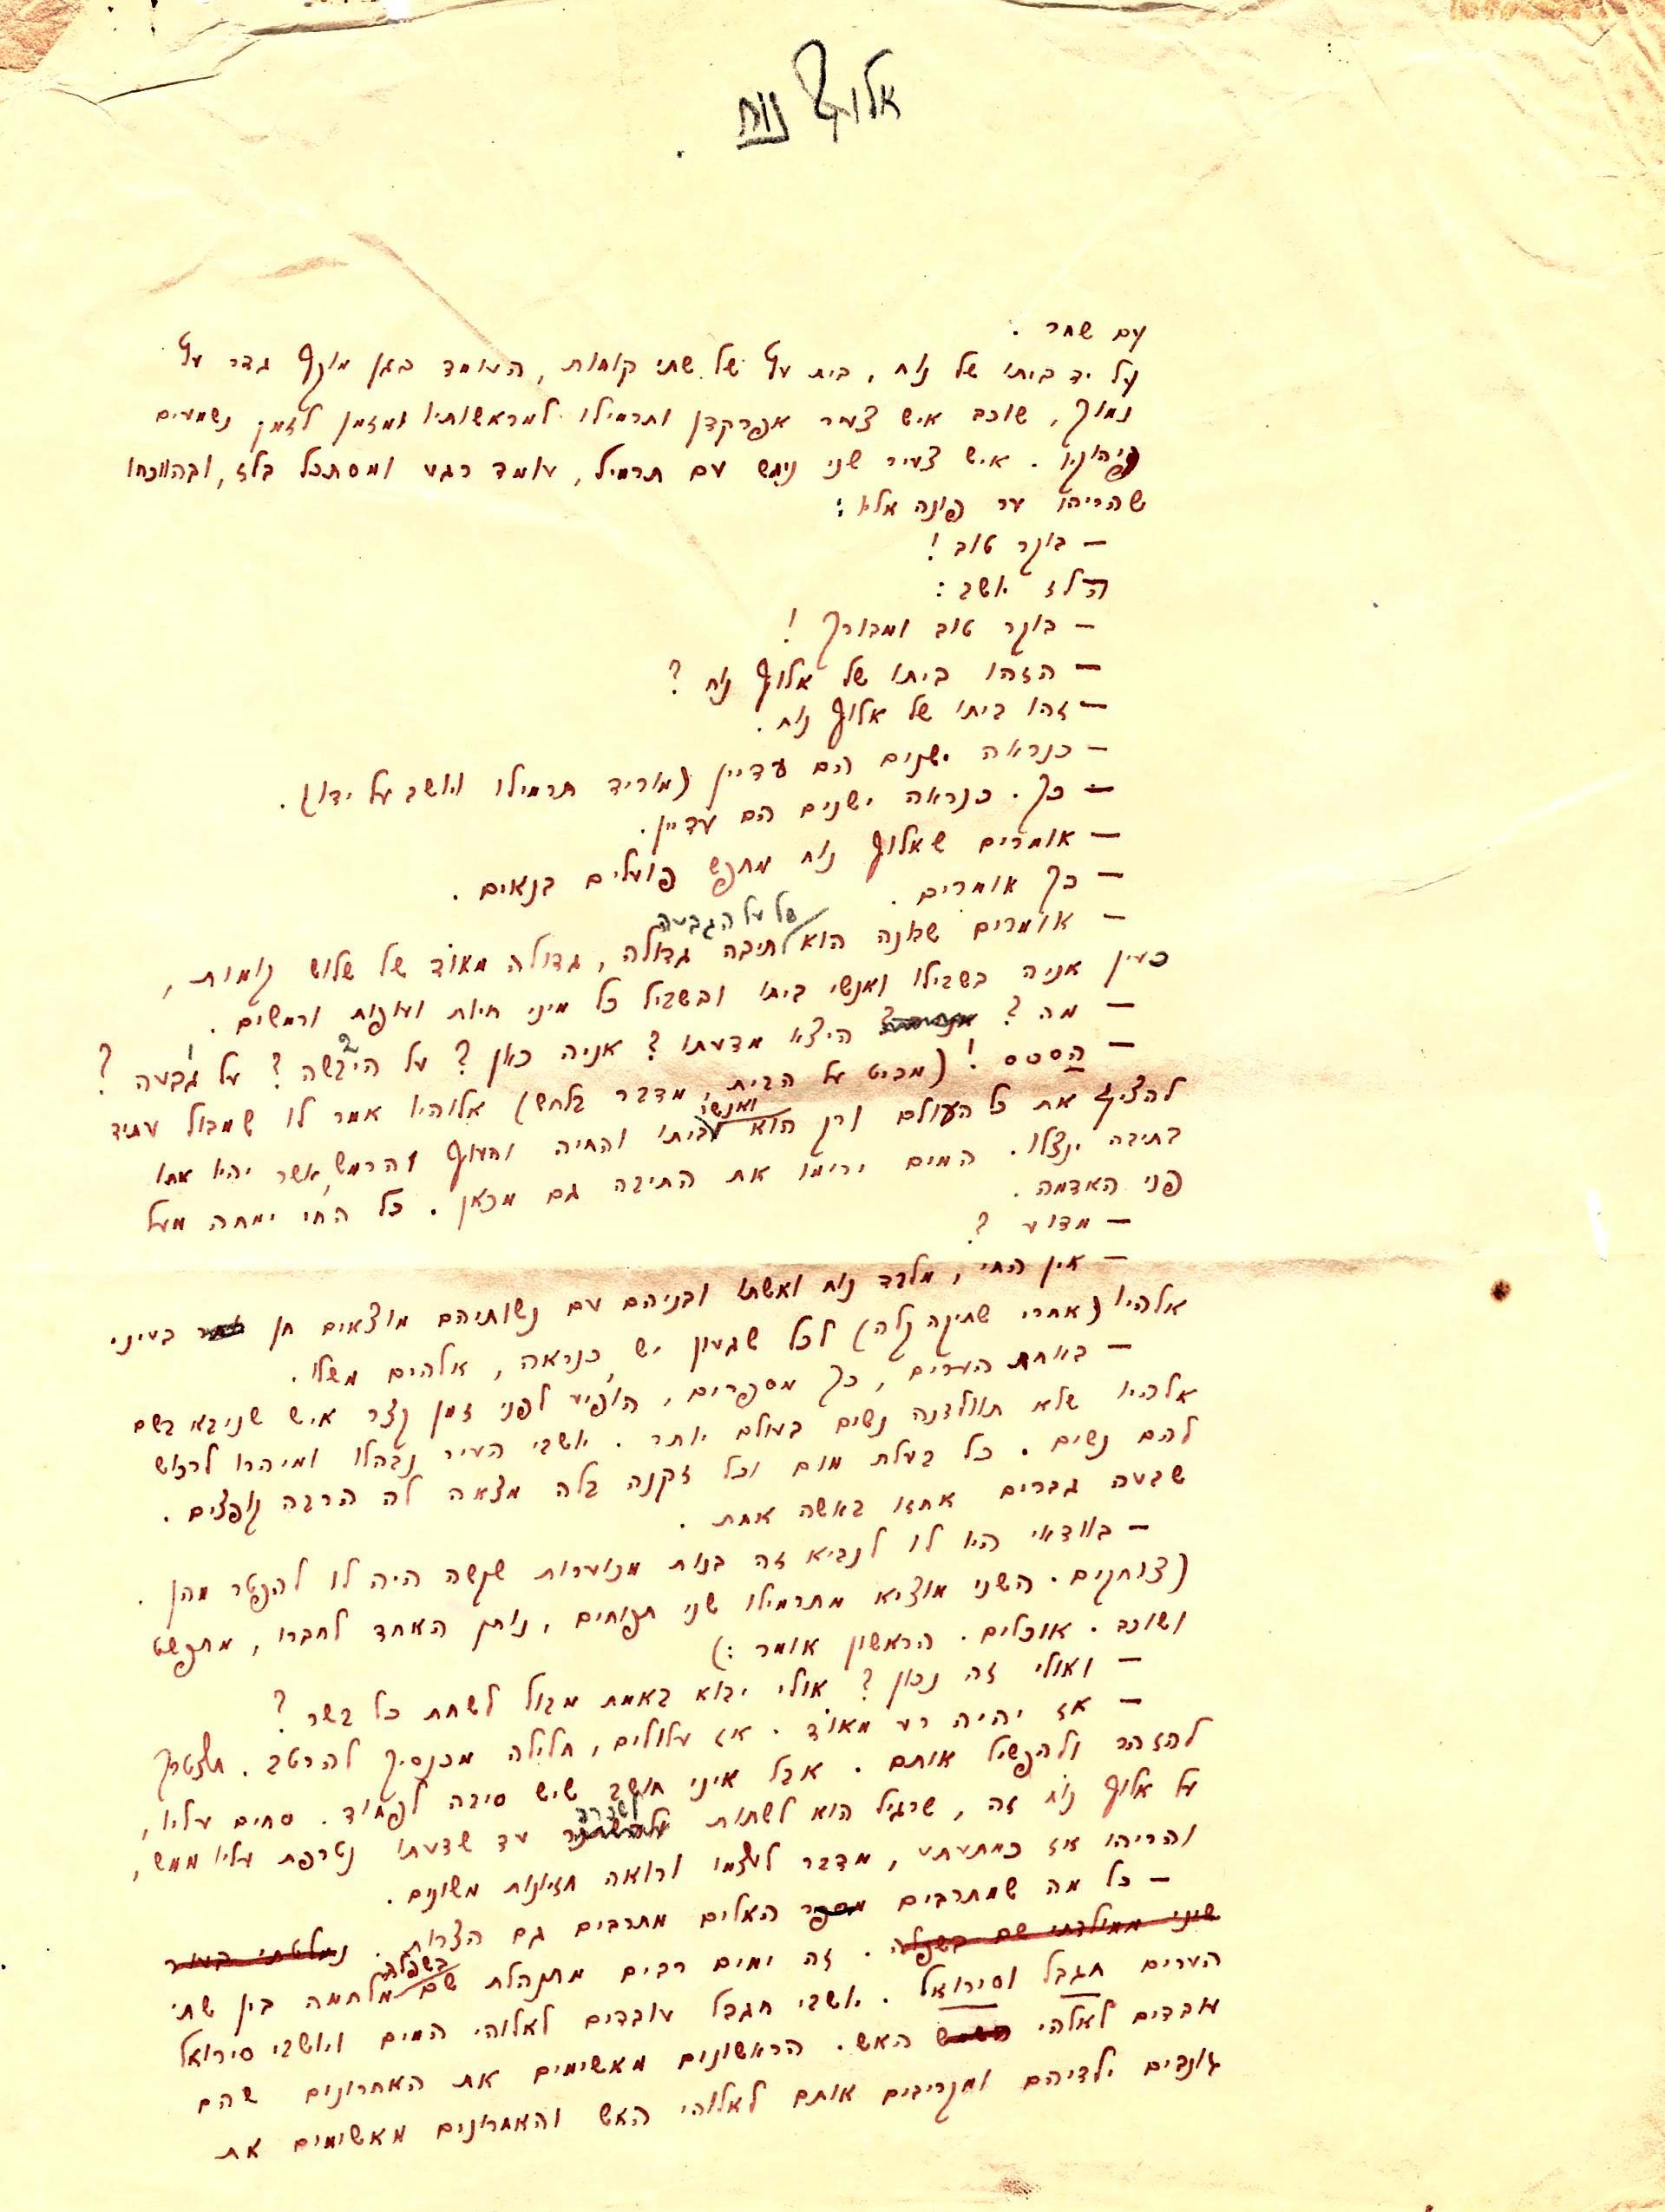 אלוף נוח .
עם שחר .
על יד ביתו של נוח, בית עץ של שתי קומות, העומד בגן מוקף גדר עץ
נמוך, שוכב איש צעיר אפרקדן ותרמילו למראשותיו ומזמן לזמן נשמעים
פיהוקיו. איש צעיר שני ניגש עם תרמיל, עומד רגע ומסתכל בלז, ובהווכחו
שהריהו ער פונה אליו :
– בוקר טוב !
הלז יושב :
– בוקר טוב ומבורך !
– הזהו ביתו של אלוף נוח ?
– זהו ביתו של אלוף נוח.
– כנראה ישנים הם עדיין (מוריד תרמילו ויושב על ידו).
– כך. כנראה ישנים הם עדיין.
– אומרים שאלוף נוח מחפש פועלים בנאים .
– כך אומרים .
פל על הגבעה
– אומרים שבונה הוא תיבה גדולה, גדולה מאוד של שלוש קומות,
כעין אניה בשבילו ואנשי ביתו ובשביל כל מיני חיות ועופות ורמשים .
– מה ? היצא מדעתו ? אניה כאן ? על היבשה ? על גבעה ?
– הססס ! (מביט על הבית, מדבר בלחש) אלוהיו אמר לו שמבול עתיד
להציף את כל העולם ורק הוא ואנשי ביתו והחיה והעוף והרמש, אשר יהיו אתו
בתיבה ינצלו. המים ירימו את התיבה גם מכאן. כל החי ימחה מעל
פני האדמה .
– מדוע ?
– אין החי, מלבד נוח ואשתו ובניהם עם נשותיהם מוצאים חן בעיני
אלהיו (אחרי שתיקה קלה) לכל שגעון יש, כנראה, אלהים משלו .
– באחת הערים, כך מספרים, הופיע לפני זמן קצר איש שניבא בשם
אלהיו שלא תוולדנה נשים בעולם יותר. יושבי העיר נבהלו ומיהרו לרכוש
להם נשים. כל בעלת מום וכל זקנה בלה מצאה לה הרבה קופצים .
שבעה גברים אחזו באשה אחת .
– בוודאי היו לו לנביא זה בנות מכוערות שקשה היה לו להפטר מהן .
(צוחקים. השני מוציא מתרמילו שני תפוחים, נותן האחד לחברו, מתפשט
ושוכב. אוכלים. הראשון אומר :)
– ואולי זה נכון ? אולי יבוא באמת מבול לשחת כל בשר ?
– אז יהיה רע מאוד. אז עלולים, חלילה מכנסיך להרטב. תצטרך
להזהר ולהפשיל אותם. אבל איני חושב שיש סיבה לפחוד. סחים עליו,
על אלוף נוח זה, שרגיל הוא לשתות לשכרה עד שדעתו נטרפת עליו ממש,
והריהו אז כמתעתע, מדבר לעצמו ורואה חזיונות משונים .
– כל מה שמתרבים מספר האלים מתרבים גם הצרות. נמלטתי בעור
שיני ממולדתי שם בשפלה. זה ימים רבים מתנהלת שם בשפלה מלחמה בין שתי
הערים חגבל וסירואל. יושבי חגבל עובדים לאלוהי המים ויושבי סירואל
עובדים לאלהי האש. הראשונים מאשימים את האחרונים שהם
גונבים ילדיהם ומקריבים אותם לאלוהי האש והאחרונים מאשימים את